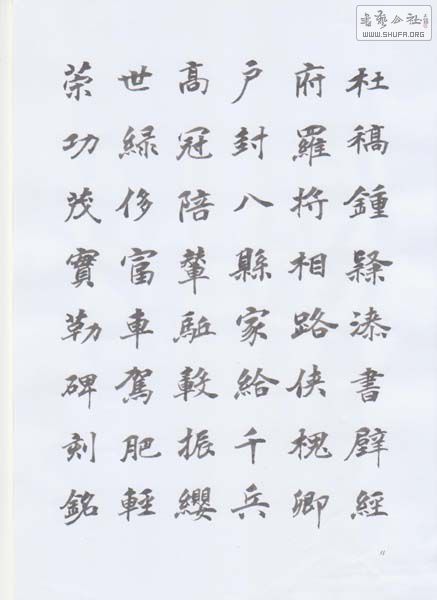 杜稿鍾隸漆書壁經
府羅將相路俠槐卿
户封八縣家給千兵
高冠陪輦驅轂振纓
世緑侈富車駕肥輕
榮功茂實勒碑刻銘
WWW.SHUFA.ORG